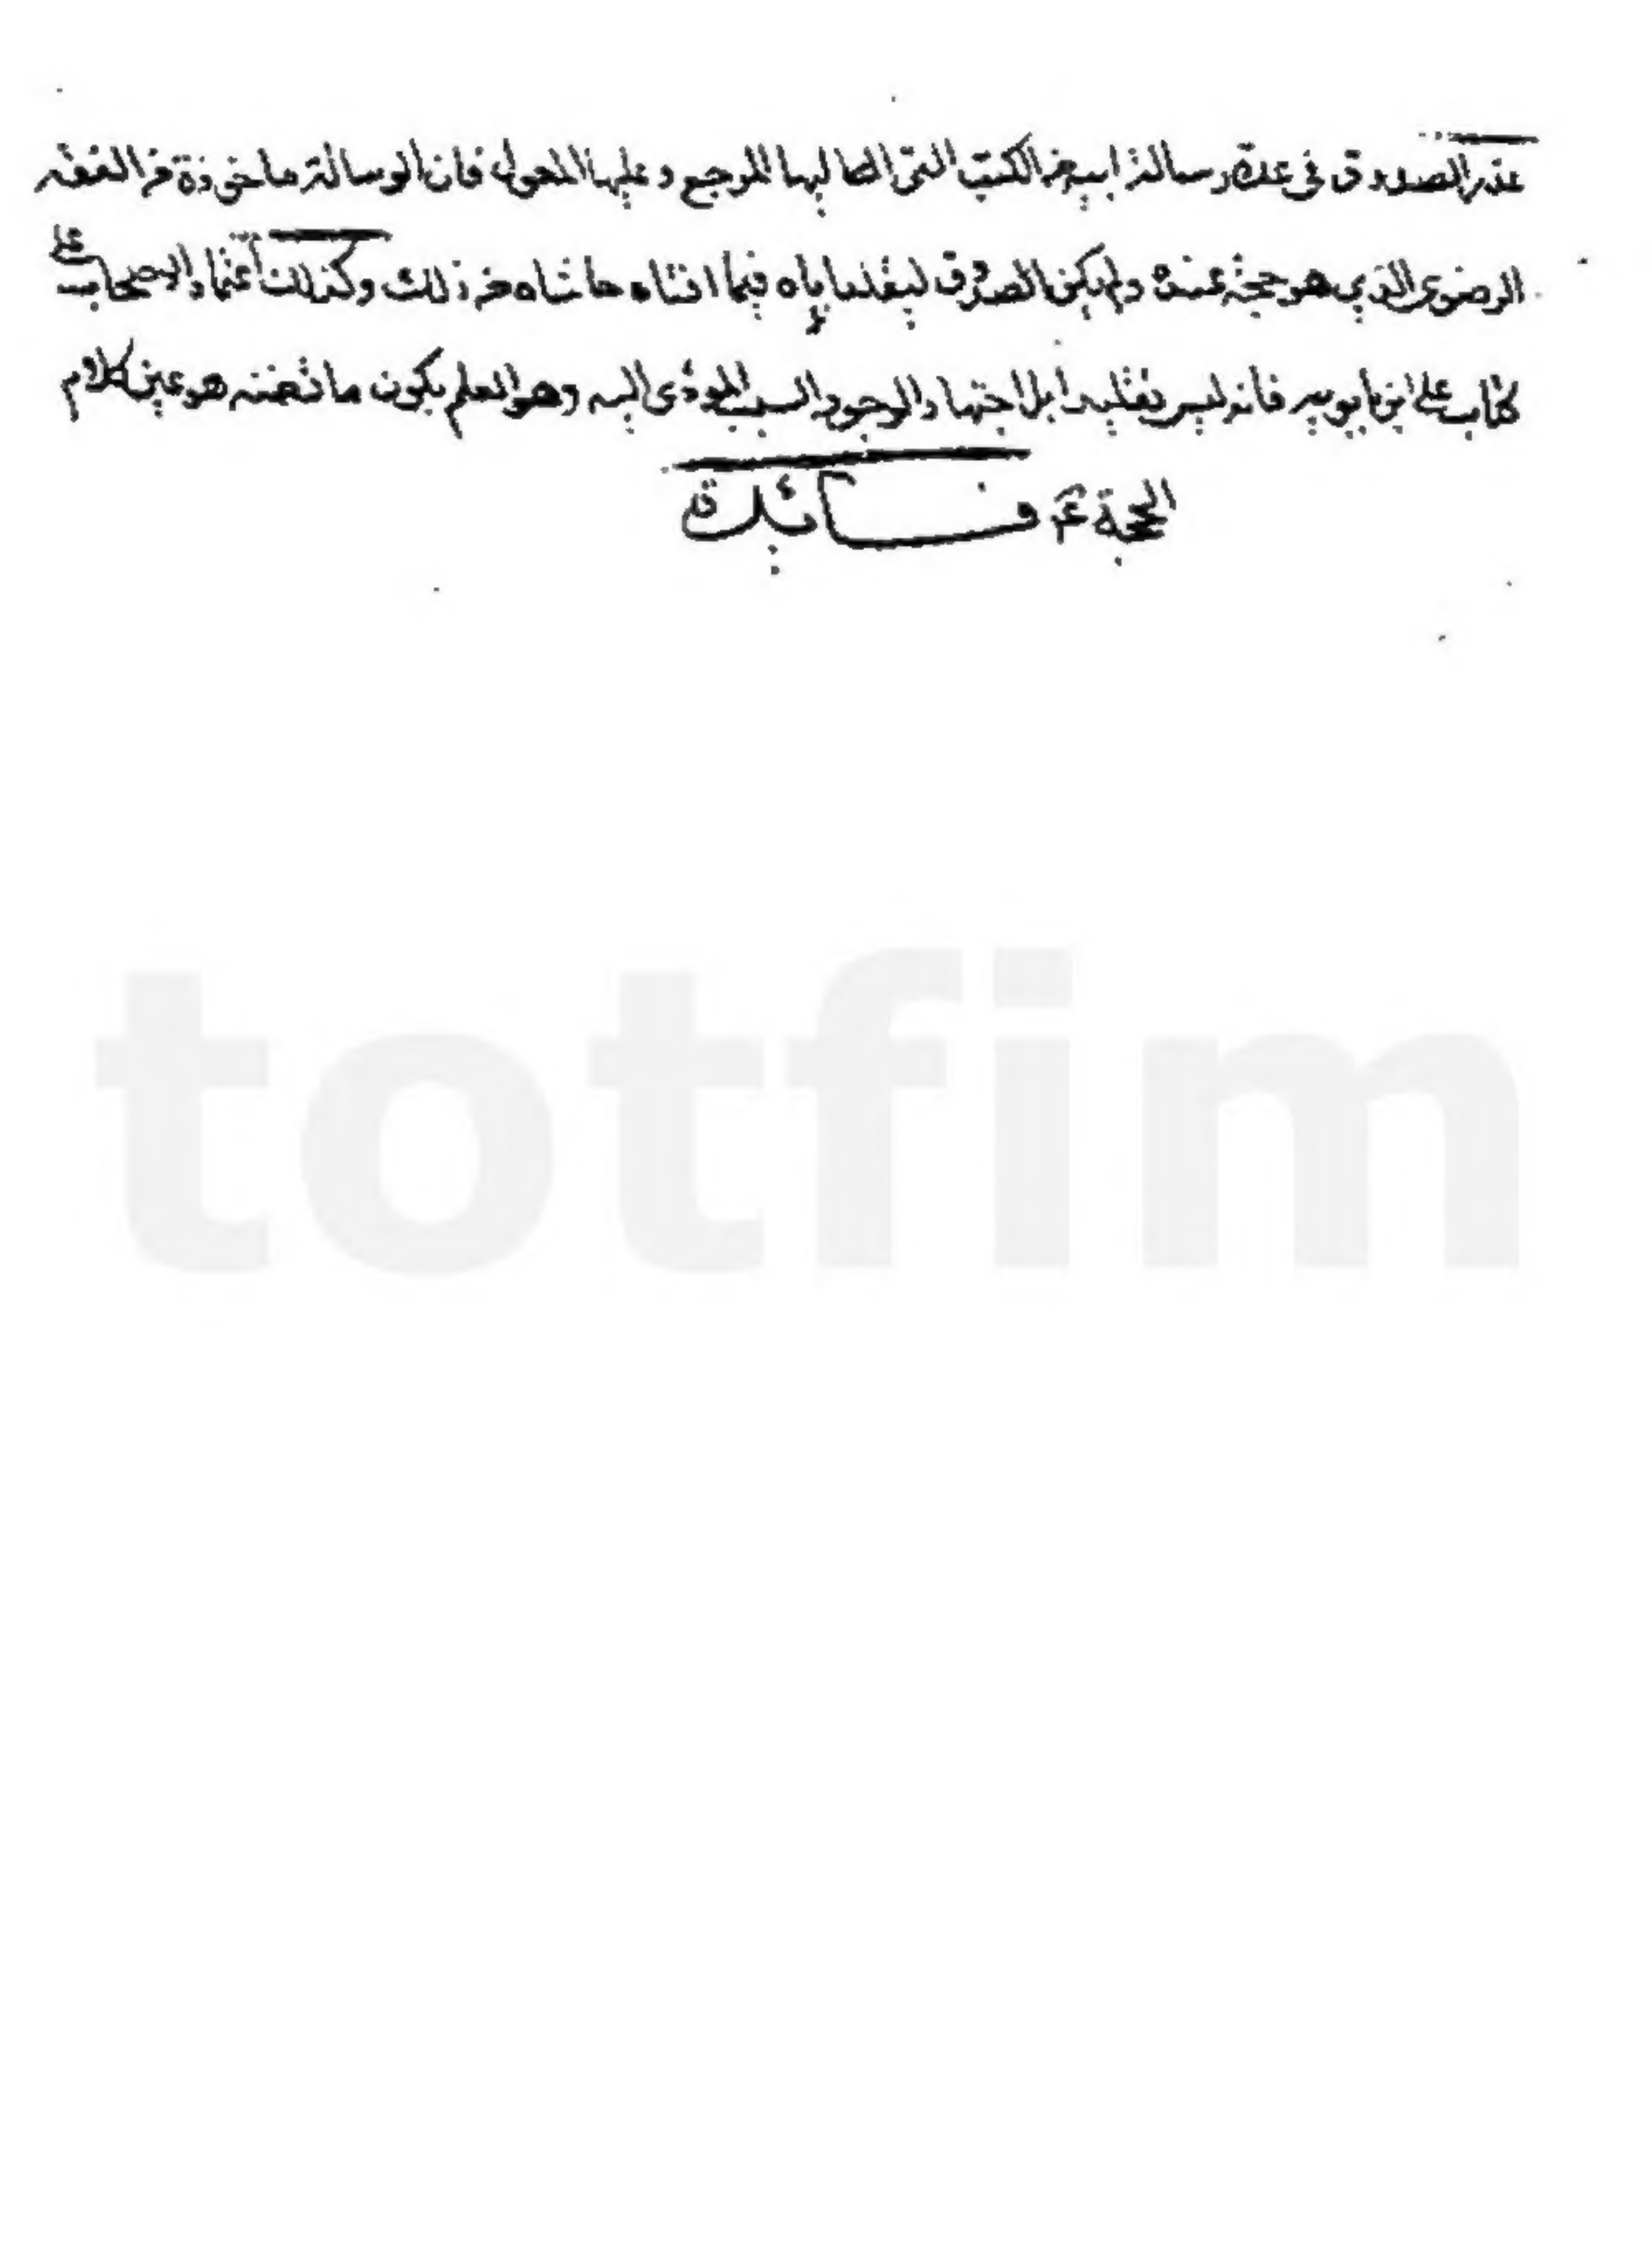 عذر الصدوق في عدة رسالة ابيه من الكتب التي اليها المرجع وعليها المعول فان الرسالة ماخوذة من الفقه
الرضوي الذي هو حجة عنده ولم يكن الصدوق ليقلد اباه فيما افتاه حاشاه من ذلك وكذلك اعتماد الاصحاب على
كتاب علي ابن بابويه فانه ليس تقليدا بل اجتهاد لوجود السبب المؤدى اليه وهو العلم بكون ما تضمنه هو عين كلام
الحجة ع فائدة
totfim